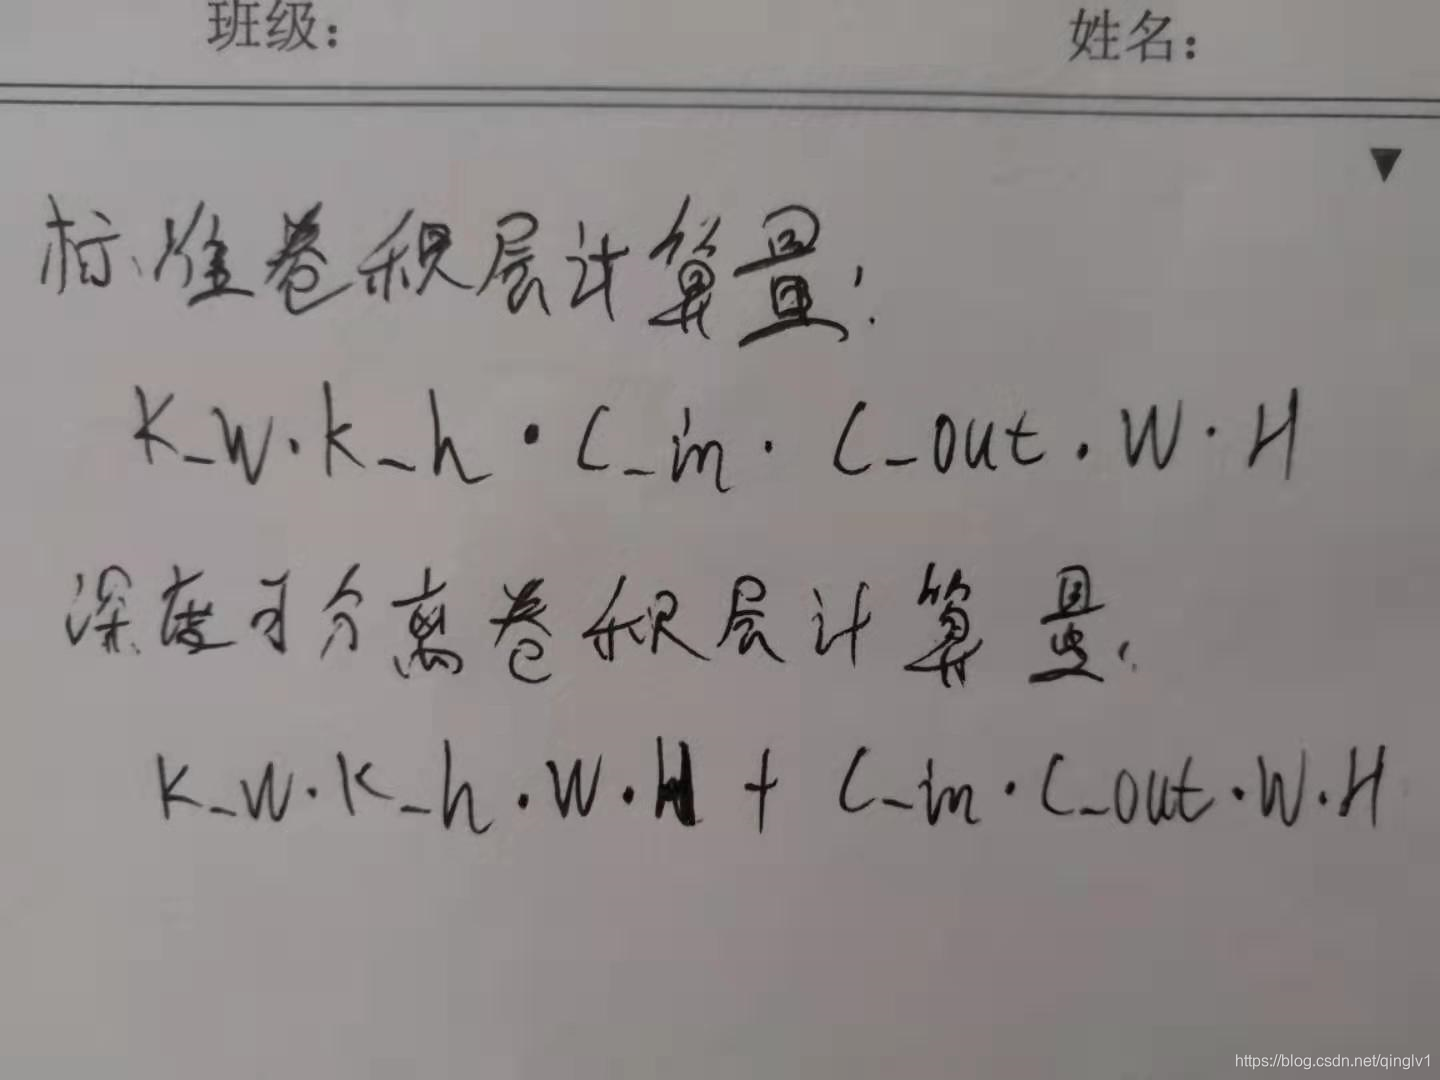 班级： 姓名：
▼
标准卷积层计算量：
K_W·k_h·C_in·C_out·W·H
深度可分离卷积层计算量：
K_W·K_h·W·H + C_in·C_out·W·H
https://blog.csdn.net/qinglv1